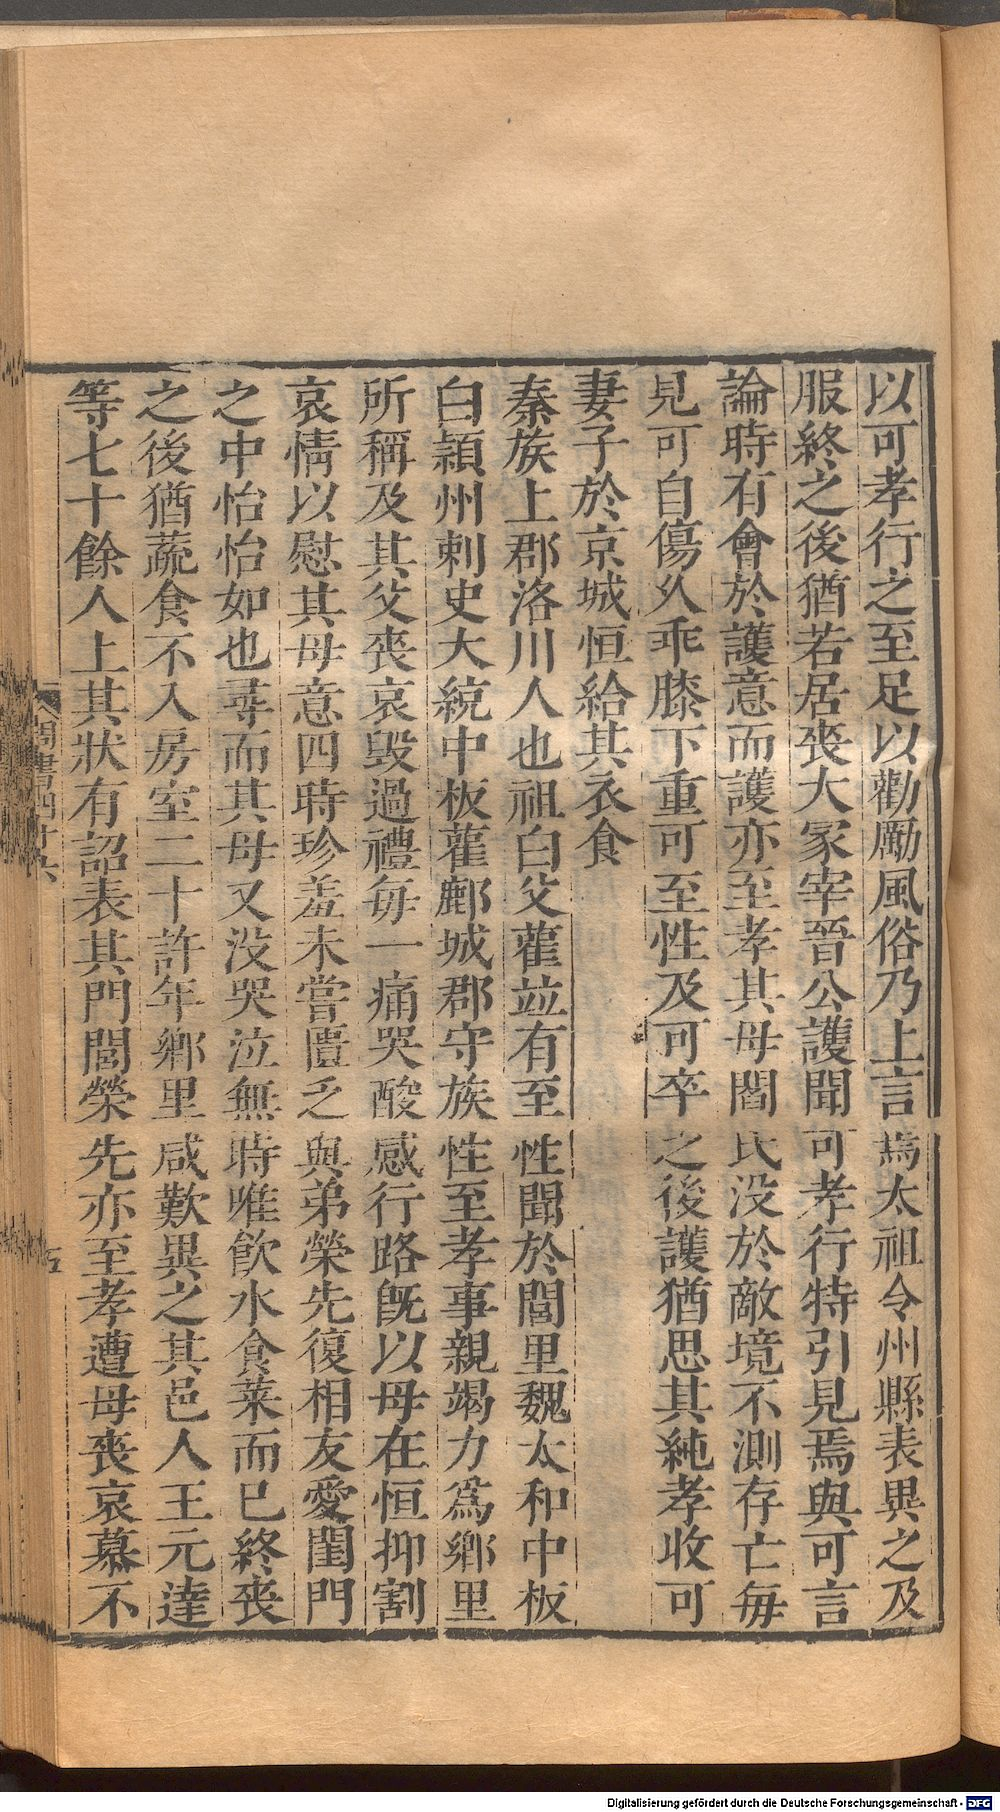 以可孝行之至足以勸勵風俗乃上言焉太祖令州縣表異之及
服終之後猶若居喪大冢宰晉公護聞可孝行特引見焉與可言
論時有會於護意而護亦至孝其母閻氏没於敵境不測存亡每
見可自傷久乖膝下重可至性及可卒之後護猶思其純孝收可
妻子於京城恒給其衣食
秦族上郡洛川人也祖白父雚竝有至性聞於閭里魏太和中板
白潁州刺史大統中板雚鄜城郡守族性至孝事親竭力爲鄉里
所稱及其父喪哀毁過禮每一痛哭酸感行路旣以母在恒抑割
哀情以慰其母意四時珍羞未嘗匱乏與弟榮先復相友愛閨門
之中怡怡如也尋而其母又没哭泣無時唯飲水食菜而已終喪
之後猶蔬食不入房室二十許年鄉里咸歎異之其邑人王元達
等七十餘人上其狀有詔表其門閭榮先亦至孝遭母喪哀慕不
周書四十六
五
Digitalisierung gefördert durch die Deutsche Forschungsgemeinschaft - DFG